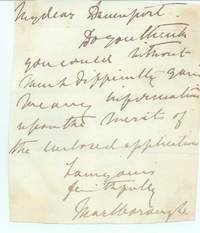 My dear Davenport.
Do you think
you could without
much difficulty gain
me any information
upon the merit of
the enclosed application
I am yours
faithfully
Marlborough